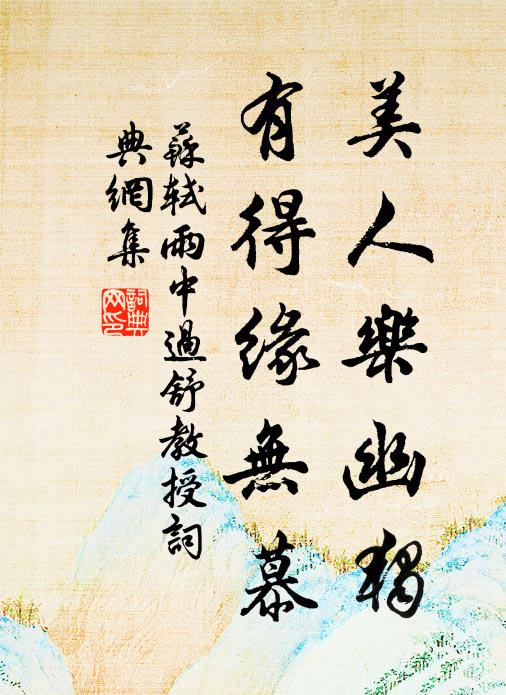 美人樂幽獨
有得緣無慕
蘇軾雨中過舒教授詞
典網集
詞典
网印